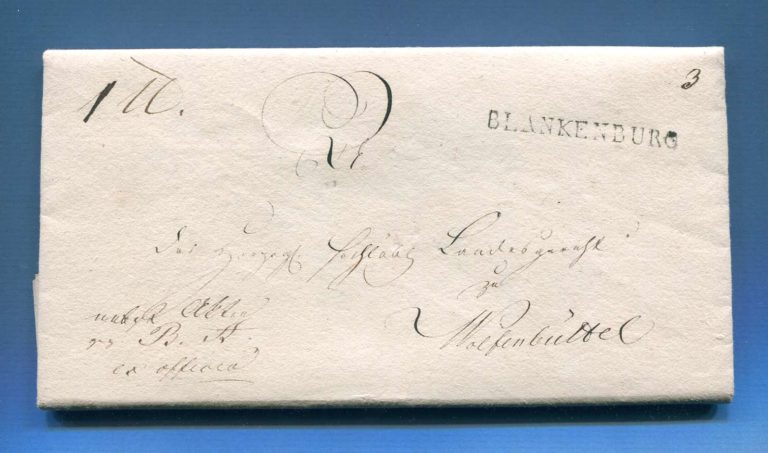 1 ℔.
3
BLANKENBURG
Das Herzogl. Hochlöbl. Landesgericht
zu
Wolfenbüttel
nebst Akten
B. A.
ex officio